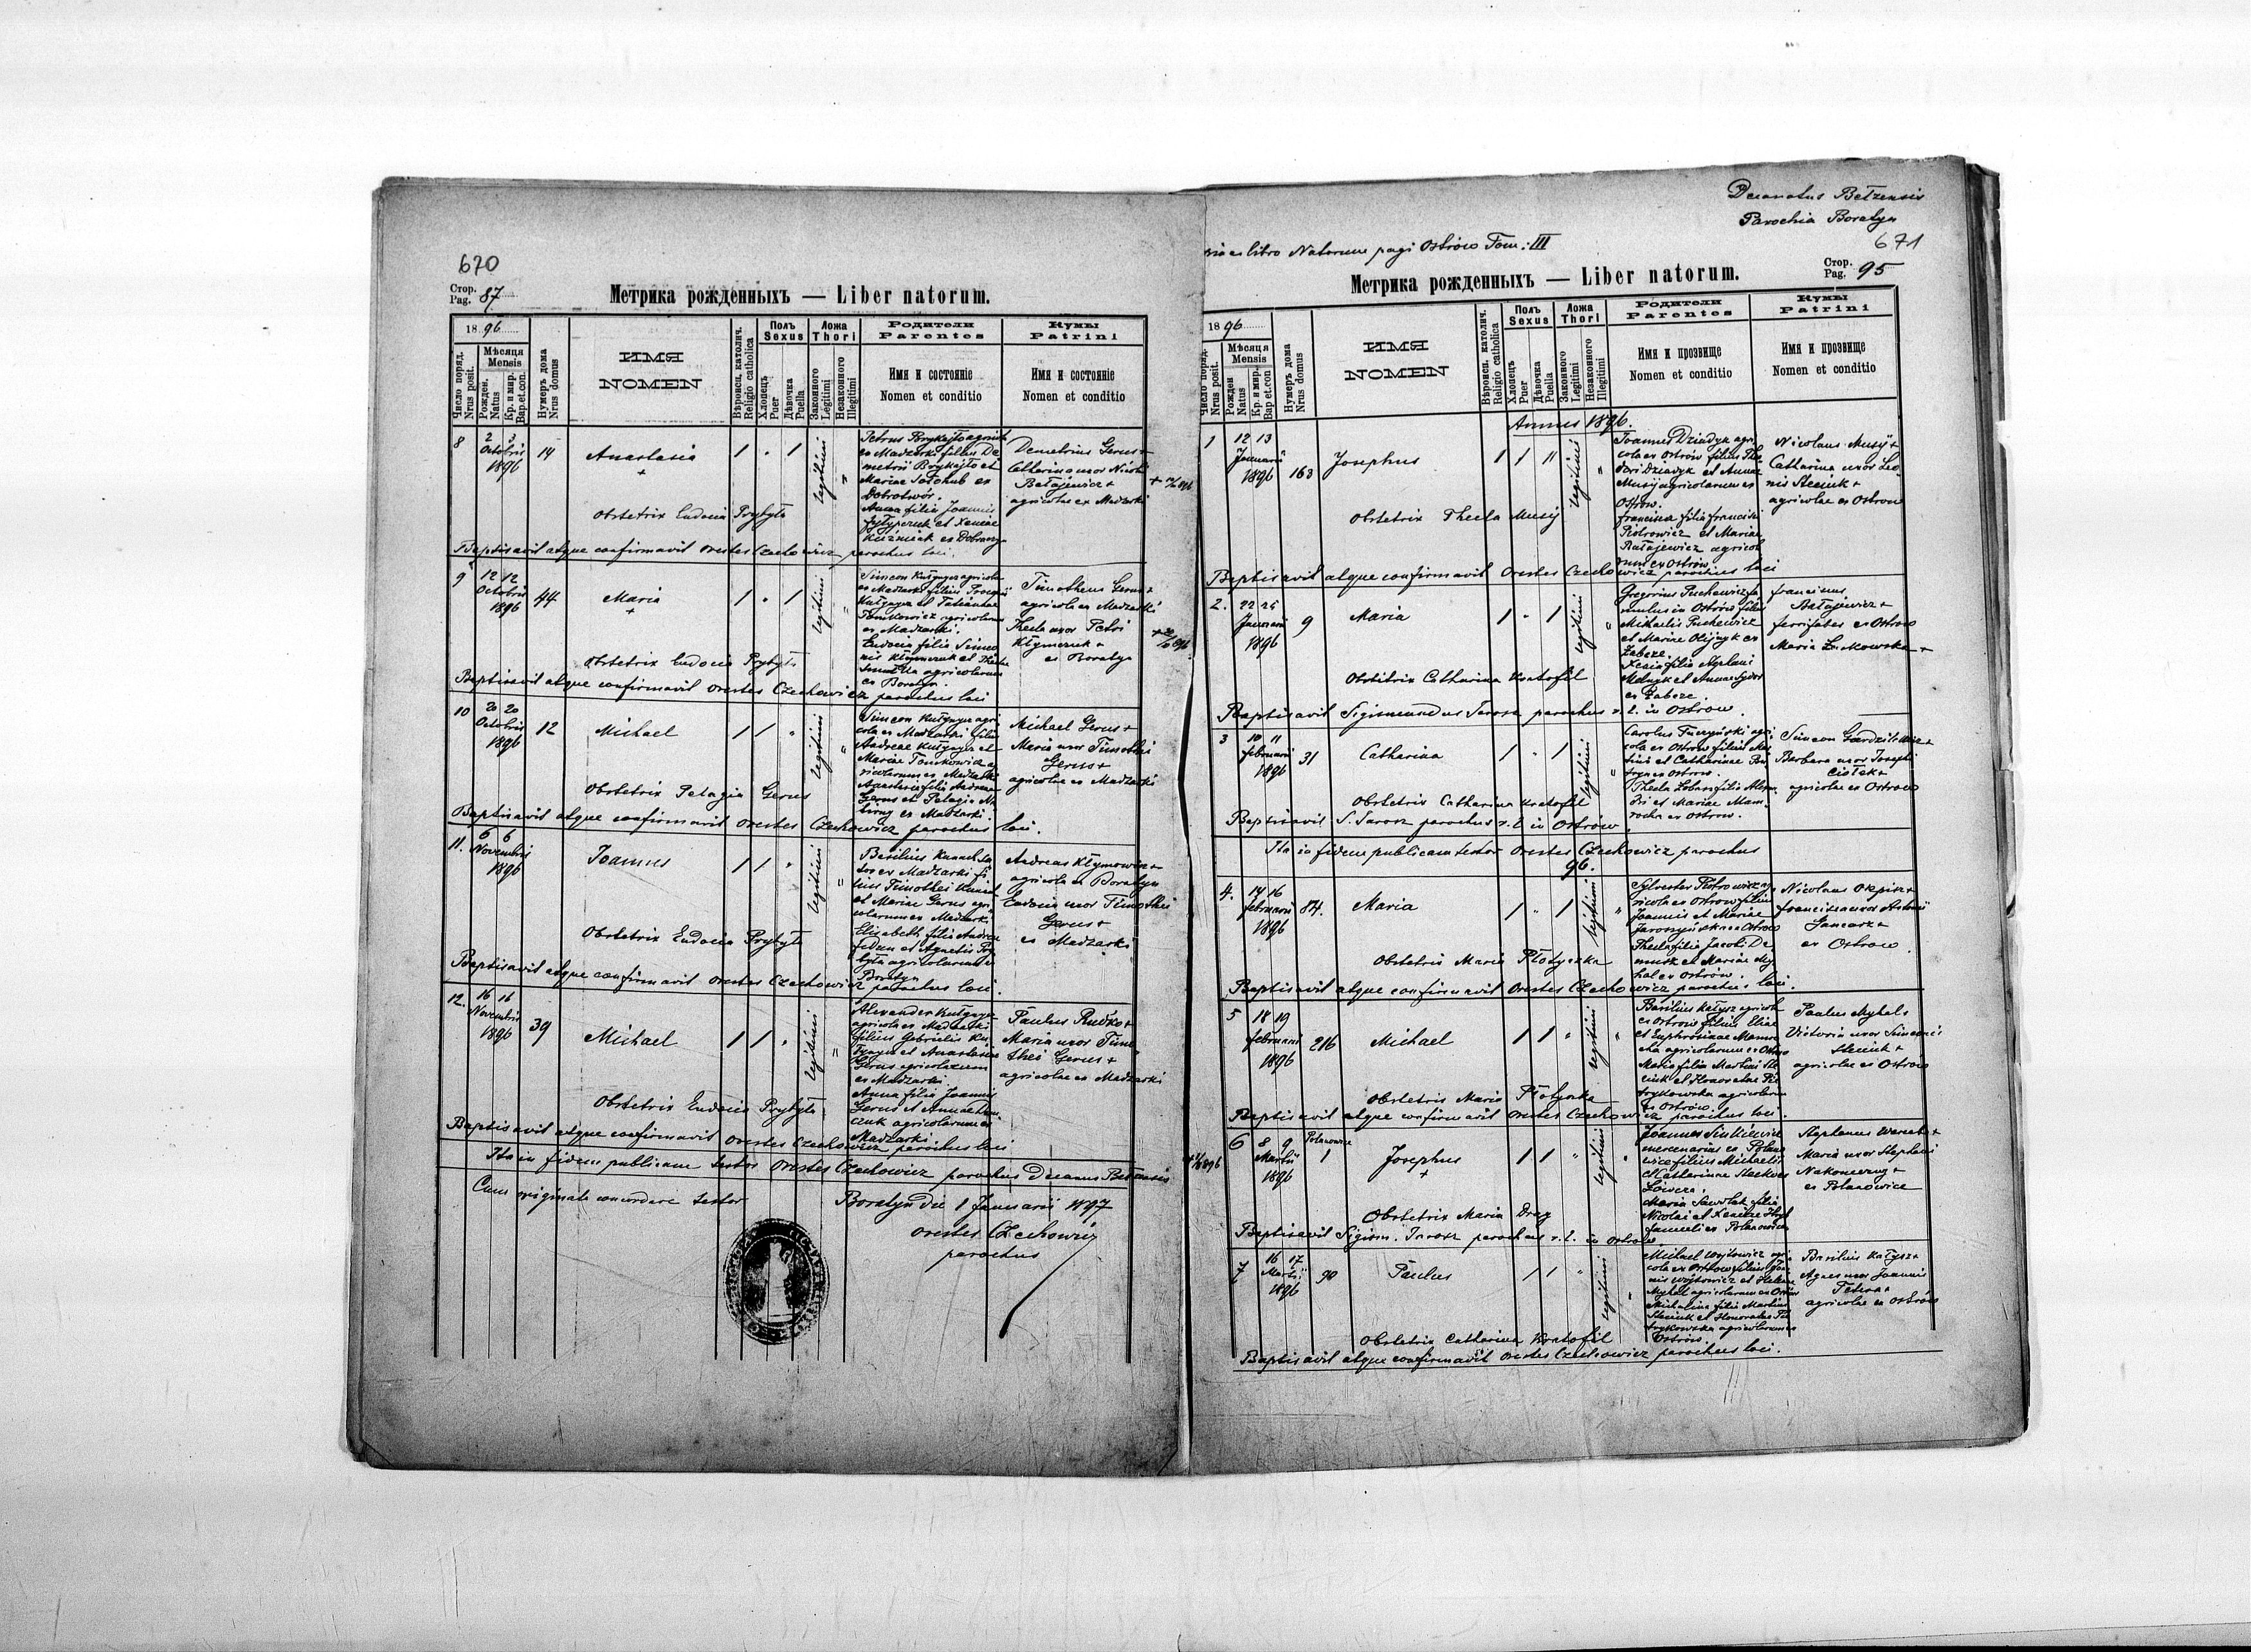 670
Стор.
Pag. 87.
Метрика рожденныхъ — Liber natorum.
1896
Число поряд.
Nrus posit.
Мѣсяца
Mensis
Рожден.
Natus
Кр. и мир.
Bap. et. con.
Нумеръ дома
Nrus domus
ИМЯ
NOMEN
Вѣроисп. католич.
Religio catholica
Полъ
Sexus
Хлопецъ
Puer
Дѣвочка
Puella
Ложа
Thori
Законного
Legitimi
Незаконного
Illegitimi
Родители
Parentes
Имя и состояніе
Nomen et conditio
Кумы
Patrini
Имя и состояніе
Nomen et conditio
8
2 3
Octobris
1896
14
Anastasia
+
1 . 1
legitimi
Petrus Brykajło agricola
ex Madzarki filius De
metrii Brykajło et
Mariae Sołohub ex
Dobrotwór.
Anna filia Joannis
et Xeniae
Kuźmiak ex
Demetrius Gerus +
Catharina uxor
Bałajewicz +
agricolae ex Madzarki
Obstetrix Eudocia Prybyła
Baptisavit atque confirmavit Orestes Czechowicz parochus loci.
9
12 12
Octobris
1896
44
Maria
+
1 . 1
legitimi
Simeon agricola
ex Madzarki filius
et Tatianae
Tomkowicz agricolarum
ex Madzarki.
Eudocia filia Simeo
nis Kłymczuk et Theclae
agricolarum
ex Boratyn.
Timotheus Gerus +
agricola ex Madzarki
Thecla uxor Petri
Kłymczuk +
ex Boratyn
Obstetrix Eudocia Prybyła
Baptisavit atque confirmavit Orestes Czechowicz parochus loci
10
20 20
Octobris
1896
12
Michael
1 1 "
legitimi
Simeon agri
cola ex Madzarki filius
Andreae et
Mariae Tomkowicz ag
ricolarum ex Madzarki
Anastasia filia Andreae
Gerus et Pelagiae
ex Madzarki.
Michael Gerus +
Maria uxor Timothei
Gerus +
agricolae ex Madzarki
Obstetrix Pelagia Gerus
Baptisavit atque confirmavit Orestes Czechowicz parochus loci.
11.
6 6
Novembris
1896
Joannes
1 1 "
legitimi
Basilius
ex Madzarki fi
lius Timothei
et Mariae Gerus agri
colarum ex Madzarki
Elisabeth filia Andreae
Fedun et Agnetis Pry
była agricolarum ex
Boratyn
Andreas Kłymowicz +
agricola ex Boratyn
Eudocia uxor Timothei
Gerus +
ex Madzarki
Obstetrix Eudocia Prybyła
Baptisavit atque confirmavit Orestes Czechowicz parochus loci.
12.
16 16
Novembris
1896
39
Michael
1 1 "
legitimi
Alexander
agricola ex Madzarki
filius Gabrielis
et Anastasiae
Gerus agricolarum
ex Madzarki.
Anna filia Joannis
Gerus et Annae
agricolarum ex
Madzarki
Paulus Rudko +
Maria uxor Timo
thei Gerus +
agricolae ex Madzarki
Obstetrix Eudocia Prybyła
Baptisavit atque confirmavit Orestes Czechowicz parochus loci
Ita in fidem publicam testor Orestes Czechowicz parochus Decanus Bełzensis
Cum originale concordare testor
Boratyn die 1 Januarii 1897
Orestes Czechowicz
parochus
Decanatus Bełzensis
Parochia Boratyn
671
ex libro Natorum pagi Ostrów Tom: III
Стор.
Pag. 95
Метрика рожденныхъ — Liber natorum.
1896
Число поряд.
Nrus posit.
Мѣсяца
Mensis
Рожден
Natus
Кр. и мир.
Bap et.con
Нумеръ дома
Nrus domus
ИМЯ
NOMEN
Вѣроисп. католич.
Religio catholica
Полъ
Sexus
Хлопецъ
Puer
Дѣвочка
Puella
Ложа
Thori
Законного
Legitimi
Незаконного
Illegitimi
Родители
Parentes
Имя и прозвище
Nomen et conditio
Кумы
Patrini
Имя и прозвище
Nomen et conditio
Annus 1896.
1
12 13
Januarii
1896
163
Josephus
1 1 "
legitimi
Joannes Dziadyk agri
cola ex Ostrów filius The
dori Dziadyk et Annae
Musij agricolarum ex
Ostrów.
Francisca filia Francisci
Piotrowicz et Mariae
Bałajewicz agricola
rum ex Ostrów
Nicolaus Musij +
Catharina uxor Leo
nis Steciuk +
agricolae ex Ostrow
Obstetrix Thecla Musij
Baptisavit atque confirmavit Orestes Czechowicz parochus loci
2.
22 25
Januarii
1896
9
Maria
1 " 1
legitimi
Gregorius Puchewicz fa
mulus in Ostrów filius
Michaelis Puchewicz
et Mariae Olijnyk ex
Żabcze.
Xenia filia
Melnyk et Annae Sydor
ex Żabcze.
Franciscus
Bałajewicz +
ex Ostrow
Maria +
Obstetrix Catharina Kratofil
Baptisavit Sigismundus Jarosz parochus r. l. in Ostrow.
3
10 11
Februarii
1896
31
Catharina
1 " 1
legitimi
Carolus Tuczyński agri
cola ex Ostrow filius
et Catharinae
ex Ostrow.
Thecla filia
et Mariae Mam
rocha ex Ostrow.
Simeon +
Barbara uxor Josephi
Ciołek +
agricolae ex Ostrow
Obstetrix Catharina Kratofil
Baptisavit S. Jarosz parochus r. l. in Ostrów
Ita in fidem publicam testor Orestes Czechowicz parochus
96.
4.
14 16
Februarii
1896
84.
Maria
1 " 1
legitimi
Sylvester Piotrowicz ag
ricola ex Ostrow filius
Joannis et Mariae
ex Ostrow
Thecla filia Jacobi
et Mariae My
hal ex Ostrów.
Nicolaus Okpisz +
Francisca uxor Antonii
Gancarz +
ex Ostrow
Obstetrix Maria Płotyczka
Baptisavit atque confirmavit Orestes Czechowicz parochus loci.
5
18 19
Februarii
1896
216
Michael
1 1 "
legitimi
Basilius Kałysz agricola
ex Ostrow filius Eliae
et Euphrosinae Mamro
cha agricolarum ex Ostrow
Maria filia Martini Ste
ciuk et Honoratae Pie
trykowska agricolarum
ex Ostrów.
Paulus Myhal +
Victoria uxor Simeonis
Steciuk +
agricolae ex Ostrow
Obstetrix Maria Płotyczka
Baptisavit atque confirmavit Orestes Czechowicz parochus loci.
6
8 9
Martii
1896
Polanowice
1
Josephus
+
1 1 "
legitimi
Joannes Sinkiewicz
mercenarius ex Polano
wice filius Michaelis
et Catharinae
Maria Sawdak filia
Nicolai et Xeniae
ex Polanowice
Stephanus +
Maria uxor Stephani
Nakoneczny +
ex Polanowice
Obstetrix Maria Drag
Baptisavit Sigism. Jarosz parochus r. l. in Ostrow.
7
16 17
Martii
1896
90
Paulus
1 1 "
legitimi
Michael Wojtowicz agri
cola ex Ostrow filius Joan
nis Wojtowicz et Helenae
Myhal agricolarum ex Ostrow
Michalina filia Martini
Steciuk et Honoratae Pie
trykowska agricolarum ex
Ostrów.
Basilius Kałysz +
Agnes uxor Joannis
agricolae ex Ostrów
Obstetrix Catharina Kratofil
Baptisavit atque confirmavit Orestes Czechowicz parochus loci.